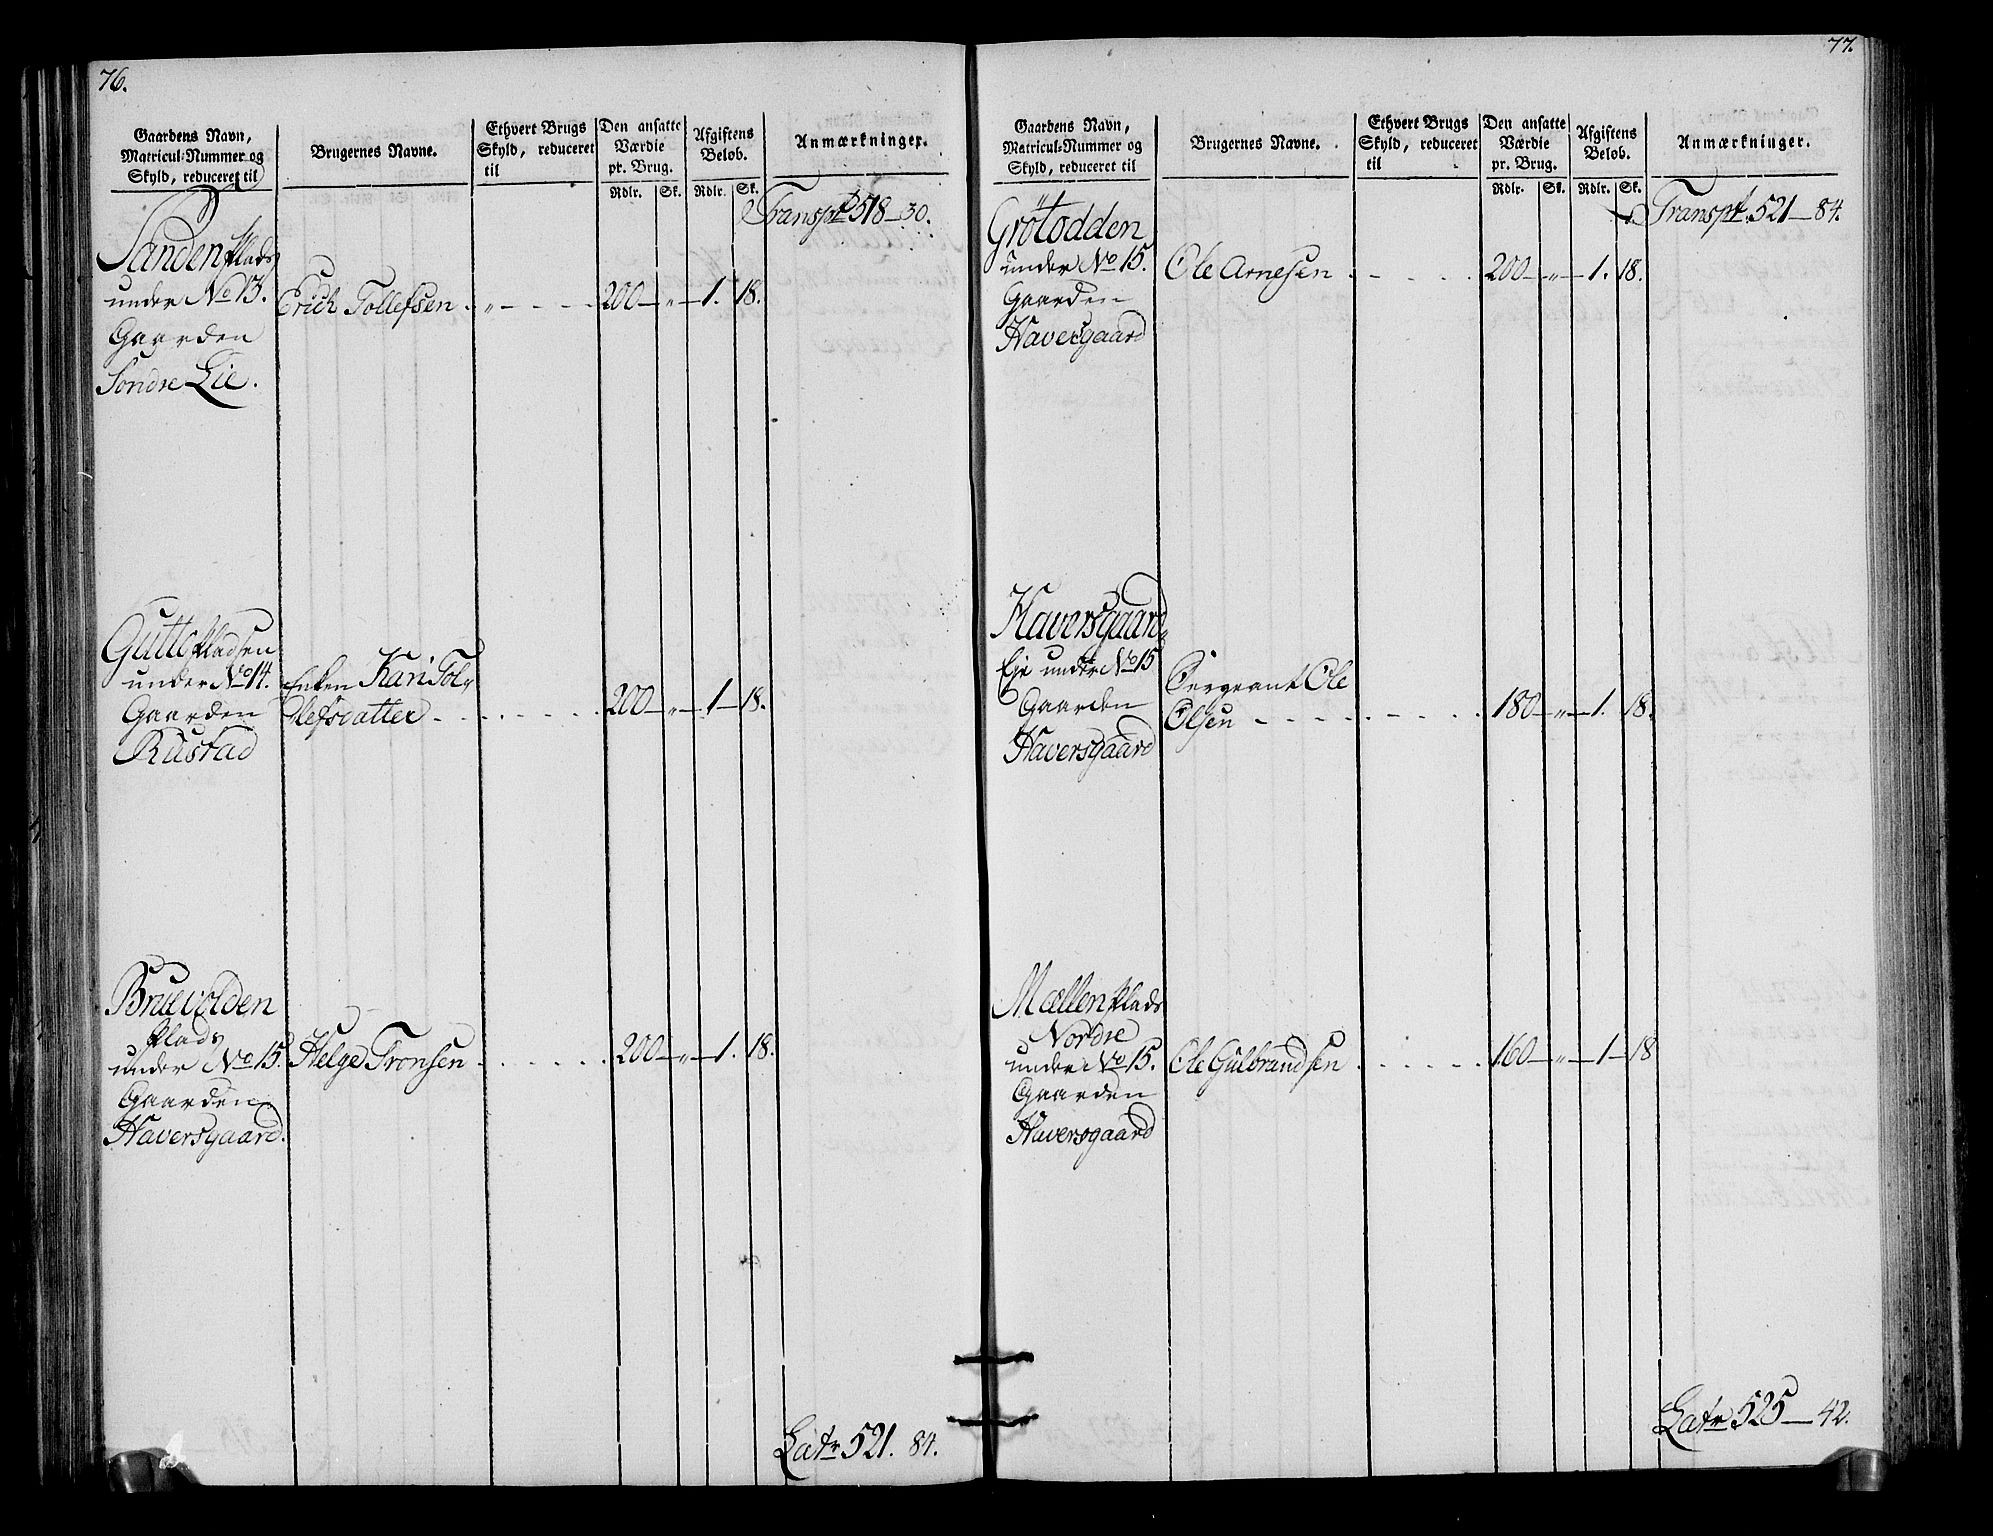 76.
Gaardens Navn, Matricul-Nummer og Skyld, reduceret til
Brugernes Navne.
Ethvert Brugs Skyld, reduceret til
Den ansatte Værdie pr. Brug.
Afgiftens Beløb.
Anmærkninger.
Rdlr. Sk. Rdlr. Sk.
Transpt 518-30.
Sanden Plads
under No 13.
Gaarden
Søndre Lie.
Erich Tollefsen . „ - - - - 200 - „ - 1. 18.
Gutto Pladsen
under No 14.
Gaarden
Rustad
Enken Kari Tol-
lefsdatter - - - - - - 200 - „ - 1 - 18.
Bruevolden
Plads
under No 15.
Gaarden
Haversgaard.
Helge Tronsen - - - - - 200 - „ - 1. 18.
Latr 521. 84.
77.
Gaardens Navn, Matricul-Nummer og Skyld, reduceret til
Brugernes Navne.
Ethvert Brugs Skyld, reduceret til
Den ansatte Værdie pr. Brug.
Afgiftens Beløb.
Anmærkninger.
Rdlr. Sk. Rdlr. Sk.
Transpt. 521-84.
Grötodden
under No 15.
Gaarden
Haversgaard
Ole Arnesen - - - - 200 - „ - 1. 18.
Haversgaard,
Eje under No 15
Gaarden
Haversgaard
Sergeant Ole
Olsen - - - - - - 180 - „ - 1. 18.
Mællen Plads
Nordre
under No 15.
Gaarden
Haversgaard
Ole Gulbrandsen - - - - - 160 - „ - 1 - 18
Latr 525-42.